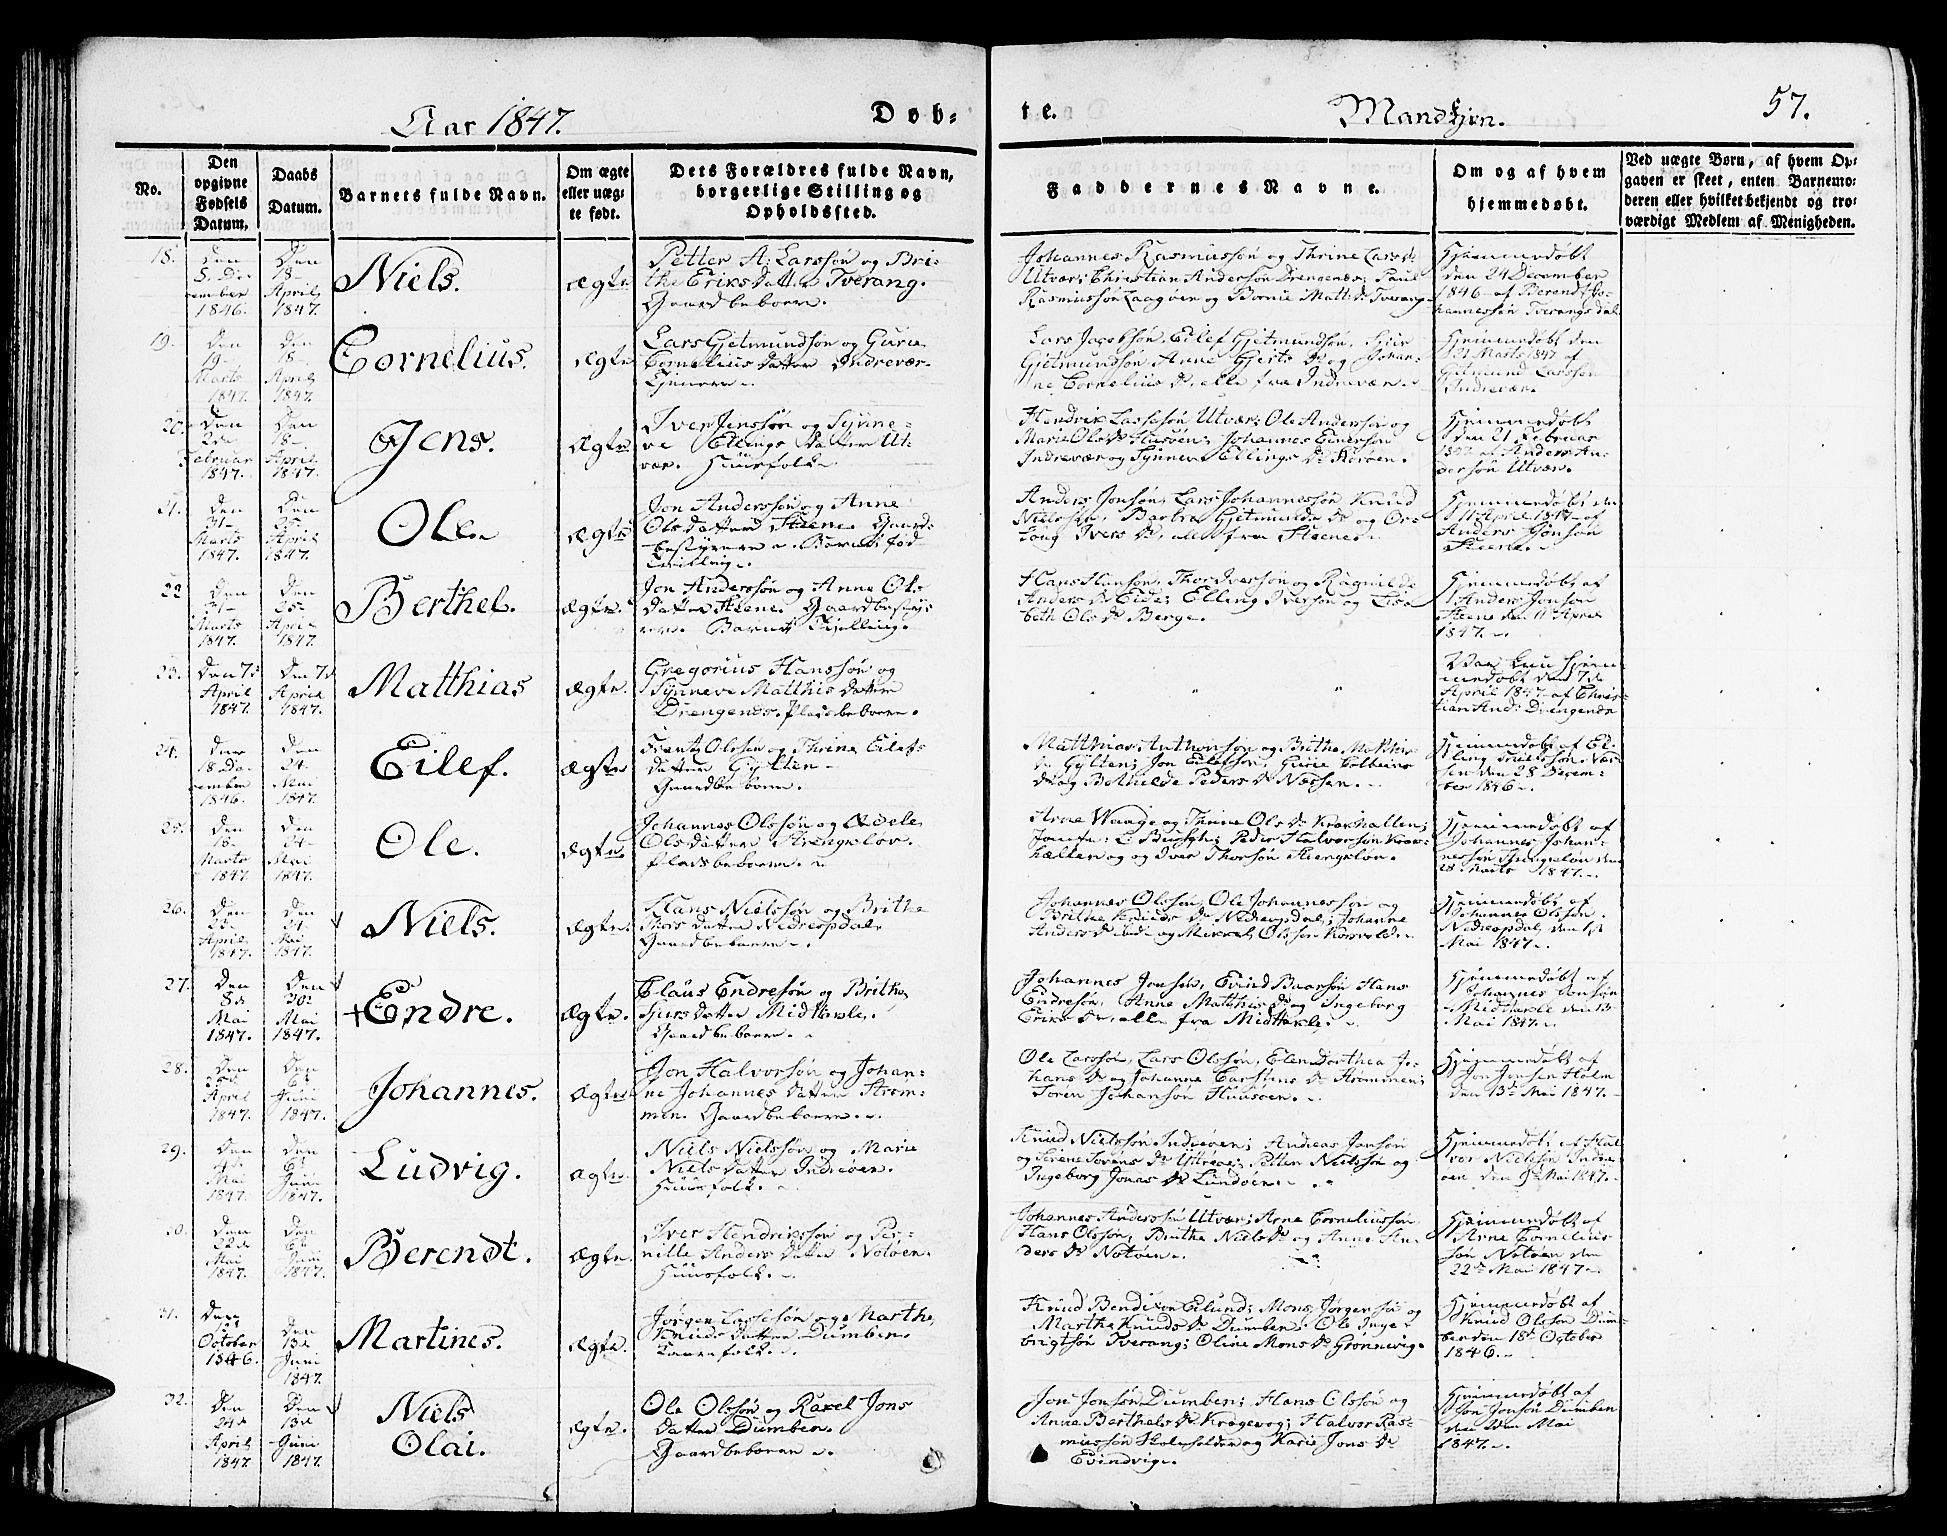 Aar 1847.
Døb-
te.
Mandkjøn.
57.
No.
Den opgivne Fødsels Datum.
Daabs Datum.
Barnets fulde Navn.
Om ægte eller uægte født.
Dets Forældres fulde Navn, borgerlige Stilling og Opholdssted.
Faddernes Navne.
Om og af hvem hjemmedøbt.
Ved uægte Børn, af hvem Opgaven er skeet, enten Barnemoderen eller hvilket bekjendt og troværdigt Medlem af Menigheden.
18.
Den 5 December 1846.
Den 18 April 1847.
Niels.
Ægte.
Petter A: Larssøn og Bri-
the Eriks Datter Tverang.
Gaardbeboere.
Johannes Rasmussøn og Thrine Lars Dr
Utvær; Christian Anderssøn Drengenæs; Paul
Rasmussøn Laagøen og Bornie Matt: Dr Tverang
Hjemmedøbt
den 24 December
1846 af Berendt Jo-
hannessøn Tverangsdal
19.
Den 19 Marts 1847.
Den 18 April 1847.
Cornelius.
Ægte
Lars Gjetmundsøn og Gurie
Cornelius Datter Indrevær.
Lars Jacobsøn, Eilef Gjetmundsøn,
Gjetmundsøn, Anne Gjerts Dr og Johan-
ne Cornelius Dr, alle fra Indrevær.
Hjemmedøbt den
21 Marts 1847 af
Gitmund Larssøn
Indrevær.
20.
Den Februar 1847.
Den 18 April 1847.
Jens.
Ægte
Iver Jenssøn og Synne-
ve Ellings Datter Ut-
vær. Huusfolk
Hendrik Lassesøn Utvær; Ole Andersøn og
Marie Ols Dr Husøen; Johannes Einersøn
Indrevær og Synneve Ellings Dr
Hjemmedøbt
den 21 Februar
1847 af Anders An-
dersøn Utvær.
21.
Den 31 Marts 1847.
Den 25 April 1847.
Ole.
Ægte
Jon Anderssøn og Anne
Ols Datter Steene. Gaard-
bestyrere. Barnet fød
Tvilling.
Anders Jonsøn, Lars Johannessøn, Knud
Nielssøn, Barbra Gjetmunds Dr og
Ivers Dr, alle fra Steene.
Hjemmedøbt den
11 April 1847 af
Anders Jonsøn
Steene.
22
Den 31 Marts 1847.
Den 25 April 1847.
Berthel.
Ægte.
Jon Anderssøn og Anne Ols
Datter Steene. Gaardbesty-
rere. Barnet Tvilling.
Hans Hansøn, Thor Iversøn og Ragnilde
Anders Dr Eide; Elling Iversøn og Lisa-
beth Ols Dr Berge.
Hjemmedøbt af
Anders Jonsøn
Steene den 11 April
1847.
23.
Den 7d April 1847.
Den 7d April 1847.
Matthias
Ægte.
Gregorius Hanssøn og
Synneve Matthis Datter
Drengenæs. Pladsbeboere.
" "
Var kun hjem-
medøbt den 7d
April 1847 af Chris-
tian And: Drengenæs
24.
Den 18 December 1846.
Den 24 Mai 1847.
Eilef.
Ægte
Frantz Olssøn og Thrine Eilefs
Datter Gylten
Gaardbeboere.
Matthias Anthonsøn og Brithe Matthis
Dr Gylten; Jon Eilefsøn, Gurie
og Bothilde Peders Dr Næssen.
Hjemmedøbt af El-
ling
den 28 Decem-
ber 1846.
25.
Den 18 Marts 1847.
Den 24 Mai 1847.
Ole.
Ægte.
Johannes Olssøn og Adele
Ols Datter Strengsløv.
Pladsbeboere.
Arne Waage og Thrine Ols Dr Kraxhallen;
Peder Halvorsøn Krax-
hallen og og Iver Thorsøn Strengsløv.
Hjemmedøbt af
Johannes Johan-
nessøn Strengsløv den
28 Marts 1847.
26.
Den 25 April 1847.
Den 24 Mai 1847.
Niels.
Ægte.
Hans Nielssøn og Brithe
Datter Nedreopdal.
Gaardbeboere.
Johannes Olssøn, Ole Johannessøn og
Brithe Knuds Dr Nedreopdal; Johanne
Anders Dr Eide og Mikkel Olssøn
Hjemmedøbt af
Johannes Olssøn
Nedreopdal, den 1d
Mai 1847.
27.
Den 8d Mai 1847.
Den 30d Mai 1847.
Endre.
Ægte.
Claus Endresøn og Brithe
Sjurs Datter Midthavle.
Gaardbeboere.
Johannes Jonsøn, Evind Baarsøn, Hans
Endresøn, Anne Matthis Dr og Ingeborg
Eriks Dr, alle fra Midthavle.
Hjemmedøbt af
Johannes Jonsøn
Midthavle den 13
Mai 1847.
28.
Den April 1847.
Den 6d Juni 1847.
Johannes.
Ægte
Jon Halvorsøn og Johan-
ne Johannes Datter Strøm-
men. Gaardbeboere.
Ole Larssøn, Lars Olssøn, Elen Dorthea Jo-
hans Dr og Johanne Carstens Dr Strømmen;
Søren Johansøn Huusøen.
Hjemmedøbt af
Jon Jonsøn Holm
den 13d Mai 1847.
29.
Den Mai 1847.
Den 6d Juni 1847.
Ludvig.
Ægte.
Niels Nielssøn og Marie
Niels Datter Indreøen.
Huusfolk.
Knud Nielssøn Indreøen; Andreas Jonsøn
og Serene Sørens Dr Petter Nielssøn og
Ingeborg Jonas Dr Lundøen.
Hjemmedøbt af Hal-
vor Nielssøn Indre-
øen den 9d Mai 1847.
30.
Den 22d Mai 1847.
Den 6d Juni 1847.
Berendt.
Ægte.
Iver Hendrikssøn og Per-
nille Anders Datter Notøen.
Huusfolk.
Johannes Anderssøn Utvær; Arne Corneliussøn,
Hans Olssøn, Brithe Niels Dr og Anne An-
ders Dr Notøen.
Hjemmedøbt af
Arne Cornelius-
søn Notøen den
22d Mai 1847.
31.
Den October 1846.
Den 13d Juni 1847.
Martines.
Ægte.
Jørgen Lassesøn og Marthe
Knuds Datter Dumben.
Knud Bendixen Eilund; Mons Jørgensøn og
Marthe Knuds Dr Dumben. Ole Inge-
brigtsøn Tverang; Oline Mons Dr Grønnevig.
Hjemmedøbt af
Knud Olssøn Dum-
ben den 18d October
1846.
32.
Den 24d April 1847.
Den 13d Juni 1847.
Niels
Olai.
Ægte.
Ole Olssøn og Raxel Jons
Datter Dumben.
Gaardbeboere.
Jon Jonsøn Dumben; Hans Olssøn og
Anna Berthels Dr Krogevog; Halvor Ras-
mussøn Skoleholder og Karie Jons Dr
Evindvig.
Hjemmedøbt af
Jon Jonsøn Dumben
den Mai
1847.